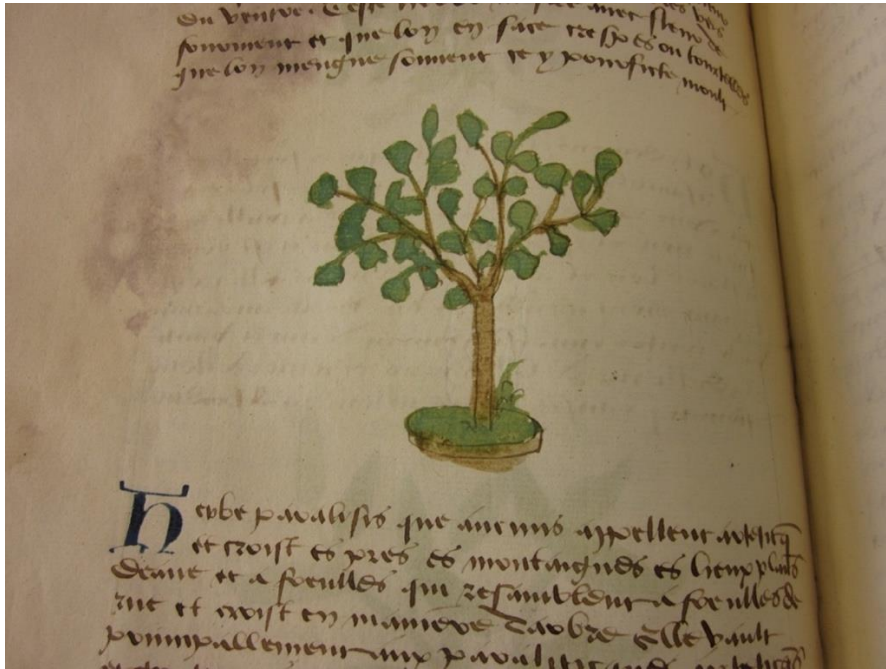 du ventre
souvent et que lon en face crespes ou tourteles
que lon mengue souvent ce y proufite moult
Herbe paralisis que aucuns appellent artetiq̄
et croist es pres es montaignes es lieux plains
deaue et a foeulles qui resamblent a foeulles de
rue et croist en maniere darbre Elle vault
principallement aux paralitiques